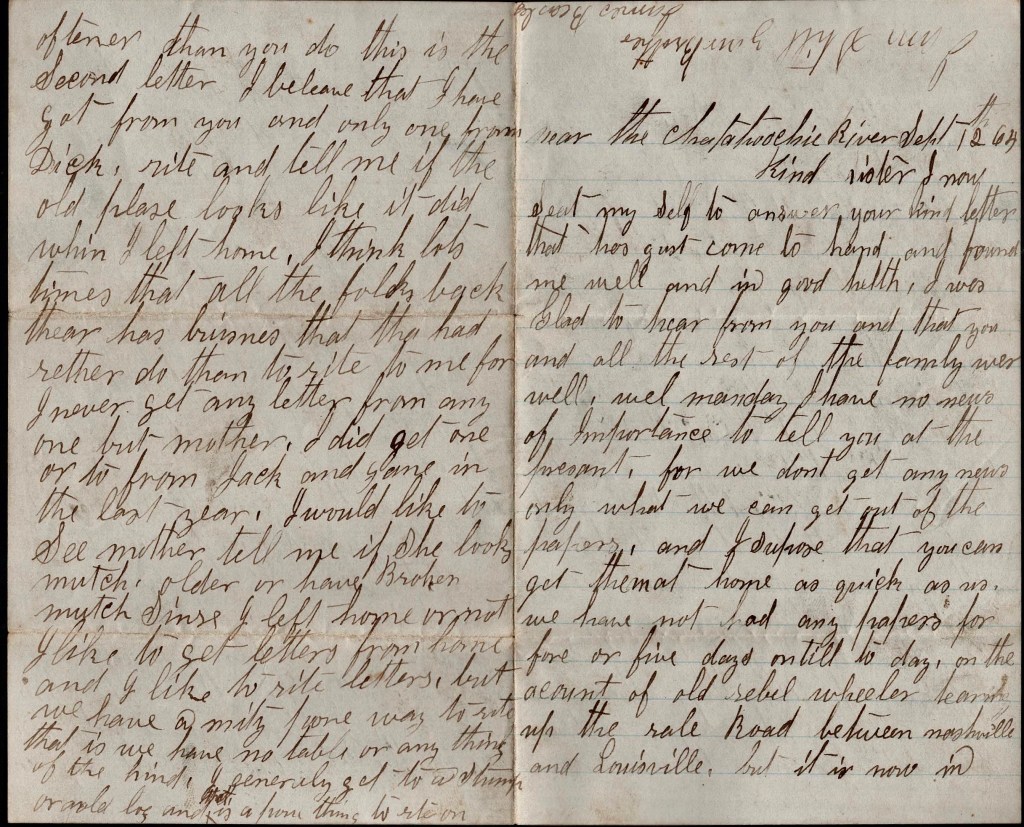 near the Chatahoochie River Sept 12th 64
Kind sister I now
seat my self to answer your kind letter
that has gust come to hand and found
me well and in good helth, I was
Glad to hear from you and that you
and all the rest of the family wer
well, wel manday I have no news
of Importance to tell you at the
presant, for we dont get any news
only what we can get out of the
papers, and I supose that you can
get them at home as quick as us.
we have not had any papers for
fore or five days ontill to day, on the
acount of old rebel wheeler tearing
up the rale Road between nashville
and Louisville, but it is now in
oftener than you do this is the
Second letter I beleave that I have
got from you and only one from
Dick, rite and tell me if the
old plase looks like it did
whin I left home, I think lots
times that all the folks back
thear has buisnes that tha had
rether do than to rite to me for
I never get any letter from any
one but mother, I did get one
or to from Jack and Jane in
the last year, I would like to
See mother tell me if She looks
mutch older or have Broken
mutch Sinse I left home or not
I like to get letters from home
and I like to rite letters, but
we have a mity pore way to rite
that is we have no table or any thing
of the kind, I generily get to a stump
or a old log and it is a pore thing to rite on